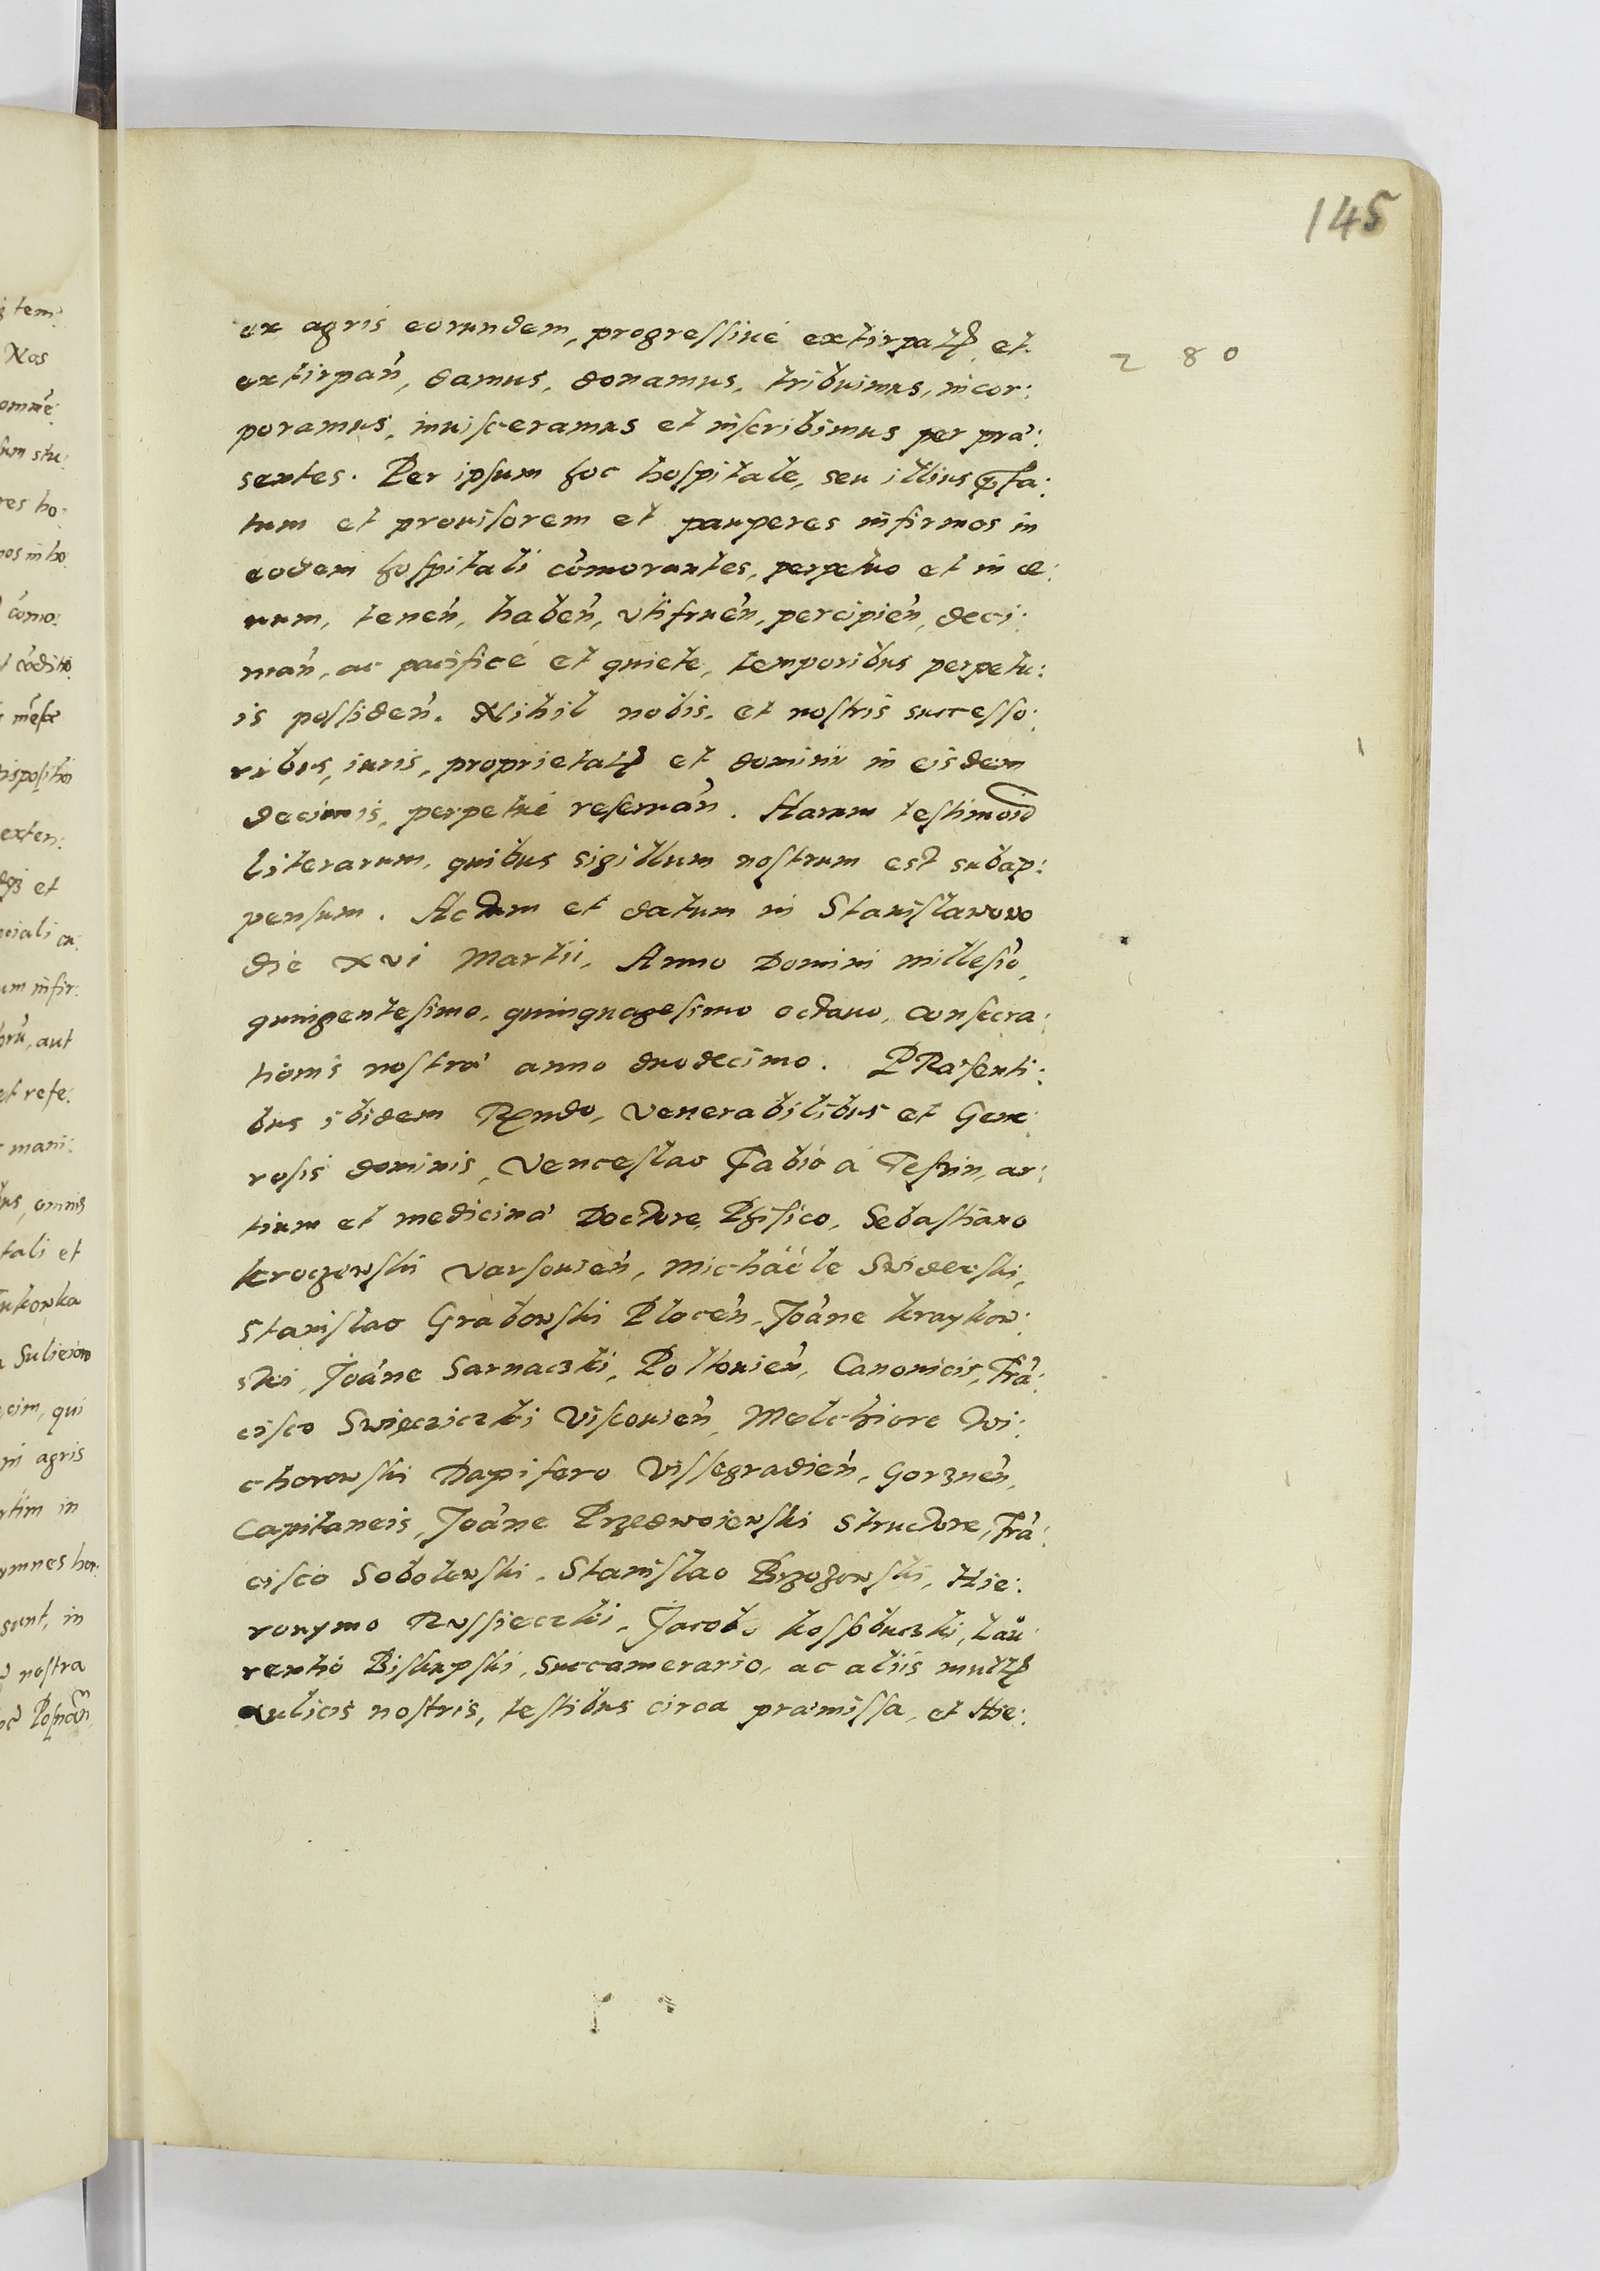 145
ex agris eorundem, progressiué extirpatꝭ et
2 8 0
extirpań, damus, donamus, tribuimus, incor:
poramus, inuisceramus et inscribimus per præ:
sentes. Per ipsum hoc hospitale, seu illius
tum et prouisorem et pauperes infirmos in
eodem hospitali cōmorantes, perpetuo et in æ:
uum, teneń, habeń, vtifrueń, percipień, deci:
mań, ac pacificé et quiete, temporibus perpetu:
is possideń. Nihil nobis, et nostris successo:
ribus, iuris, proprietatꝭ et dominii in eisdem
decimis, perpetué reseruań. Harum testimōio
literarum, quibus sigillum nostrum est subap:
pensum. Actum et datum in Stanislawowo
die xvi Martii, Anno Domini millesīo,
quingentesimo, quinquagesimo octauo, consecra:
tionis nostræ anno duodecimo. PRæsenti:
bus ibidem Rṇdo, venerabilibus et Gene:
rosis dominis, Venceslao Fabio á Tessin, ar:
tium et medicinæ Doctore, Phisico, Sebastiano
Krogowski Varsouień, Michaële Swiderski,
Stanislao Grabowski Płoceń, Joāne Kraykow:
ski, Joāne Sarnaczki, Poltouień, Canonicis, Frā:
cisco Swięcziczki Viscouień, Melchiore Wi:
chorowski Dapifero Vissegradień, Gorzneń,
Capitaneis, Joāne Przedwoiewski Structore, Frā:
cisco Sobolewski, Stanislao Brzozowski, Hie:
ronymo Russieczki, Jacobo Kossobuczki, Lau:
rentio Biskupski, Succamerario, ac aliis multꝭ
aulicis nostris, testibus circa præmissa, et Hie: